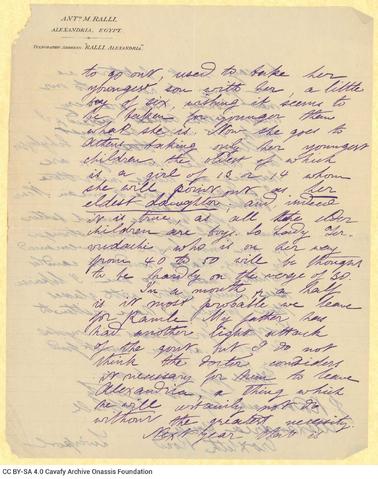 ANT. M. RALLI.
ALEXANDRIA, EGYPT.
TELEGRAPHIC ADDRESS: "RALLI. ALEXANDRIA."
to go out, used to take her
youngest son with her, a little
boy of six, wishing it seems to
be taken for younger than
what she is. Now she goes to
Athens taking only her youngest
children the oldest of which
is a girl of 13 or 14 whom
she will point out as her
eldest daughter, and indeed
it is true, as all the elder
children are boys. So Lady
who is on her way
from 40 to 50 will be thought
to be hardly on the verge of 30.
In a month & a half
is it most probable we leave
for Ramle. My father has
had another light attack
of the gout but I do not
think the doctor considers
it necessary for him to leave
Alexandria, a thing which
he will certainly not do
without the greatest necessity.
Next year
CC BY-SA 4.0 Cavafy Archive Onassis Foundation